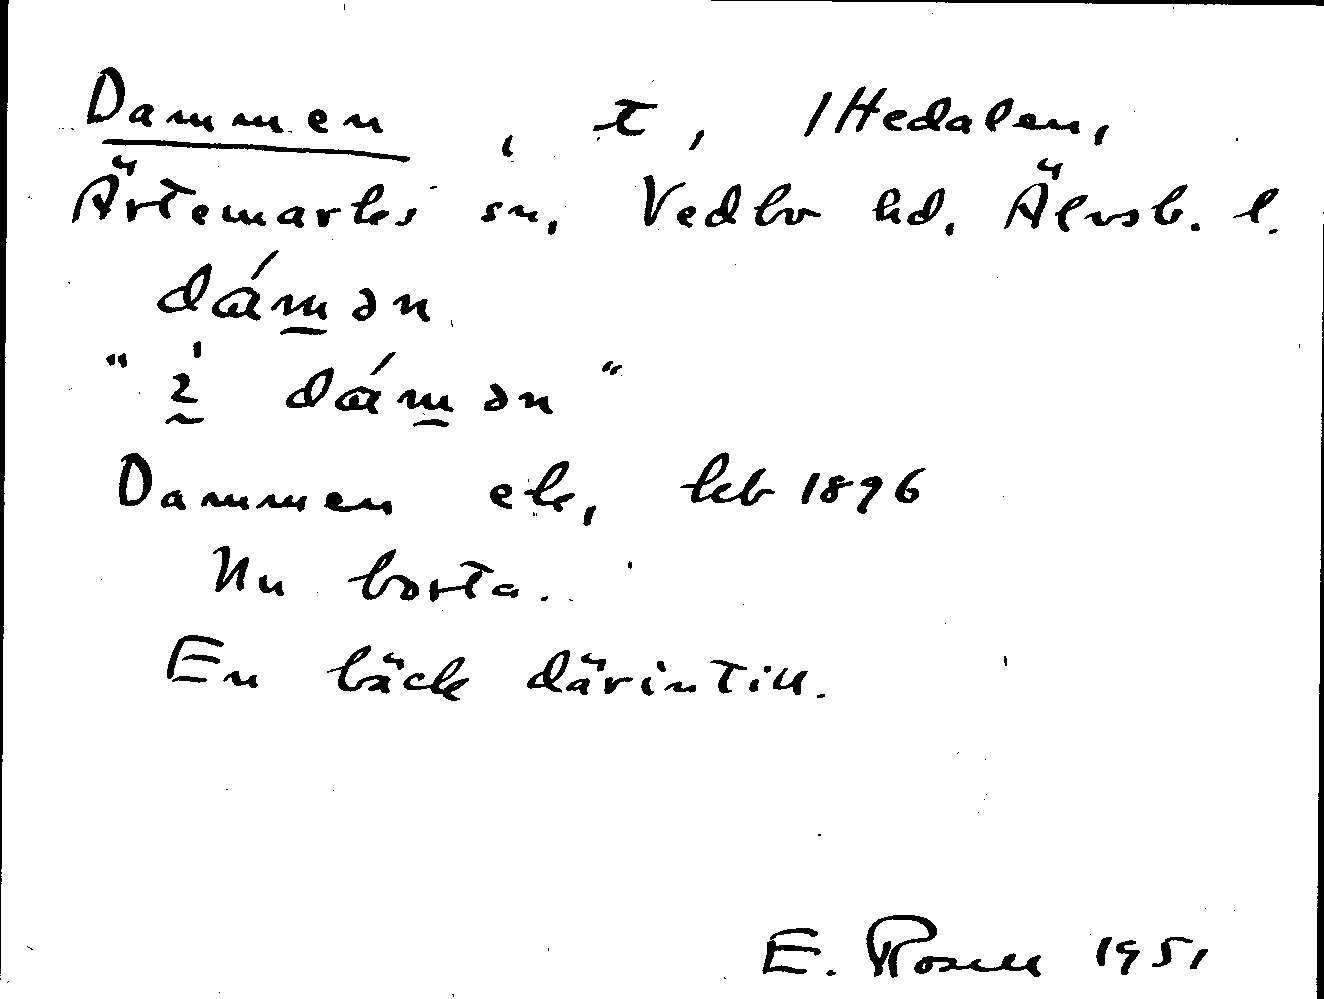 Dammen, t, 1 Hedalen,
Ärtemarks sn, Vedbo hd. Älvsb. l.
dám̲ən
"i dám̲ən"
Dammen ek, kb 1896
Nu borta.
En bäck därintill.
E. Rosell 1951